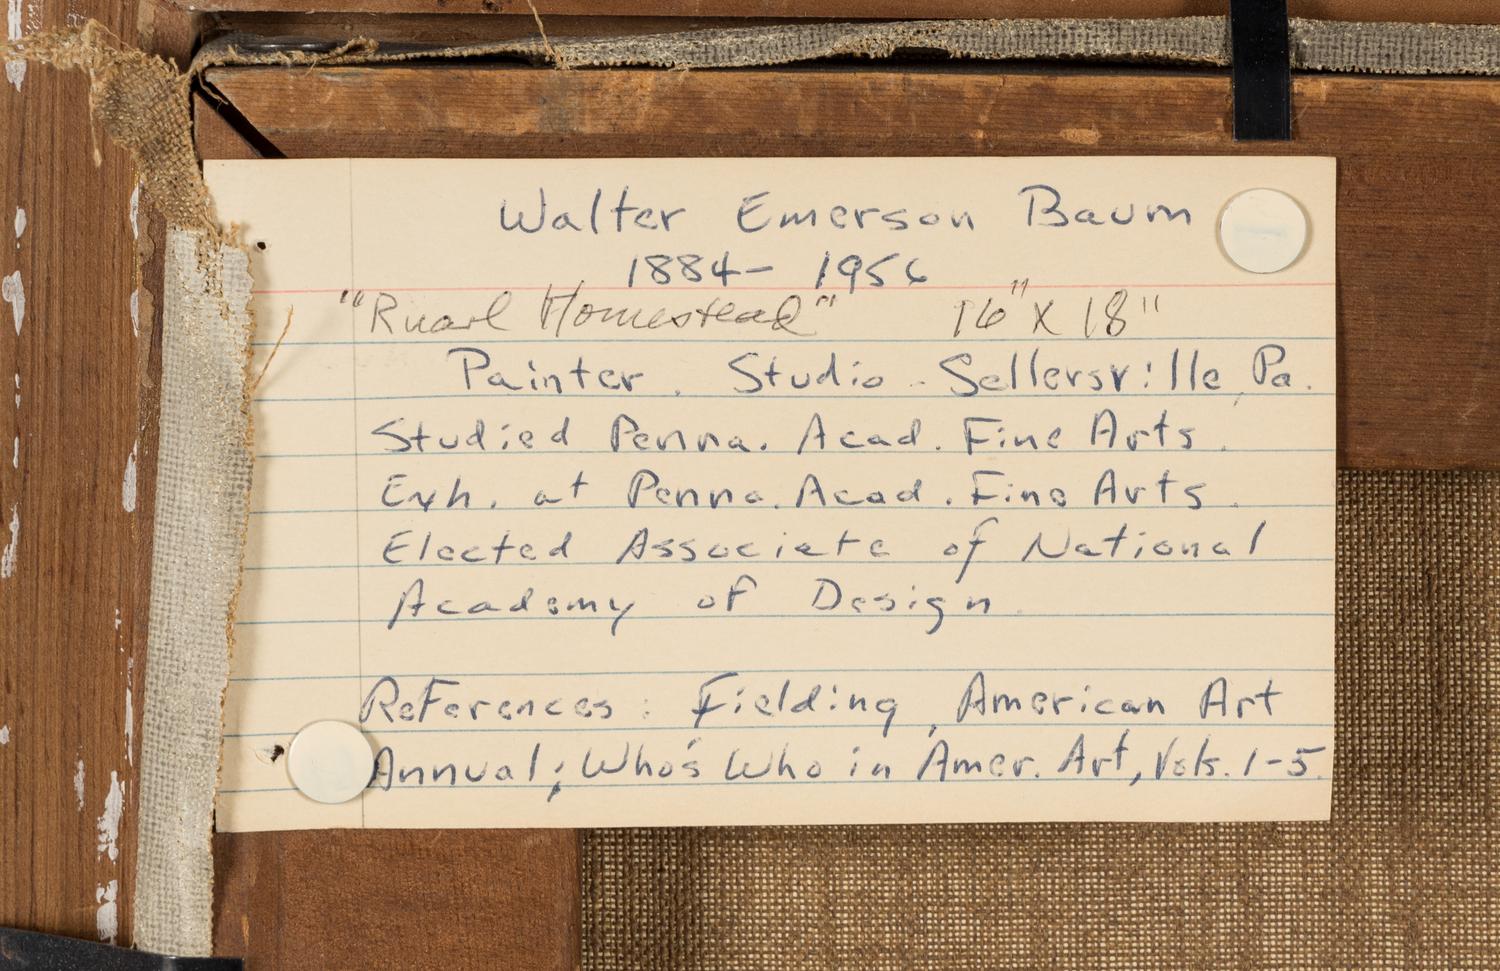 Walter Emerson Baum
1884- 1956
"Ruarl Homestead" 16" X 18"
Painter. Studio - Sellersville, Pa.
Studied Penna. Acad. Fine Arts.
Exh. at Penna. Acad. Fine Arts.
Elected Associate of National
Academy of Design
References: Fielding, American Art
Annual; Who's Who in Amer. Art, Vols. 1-5.